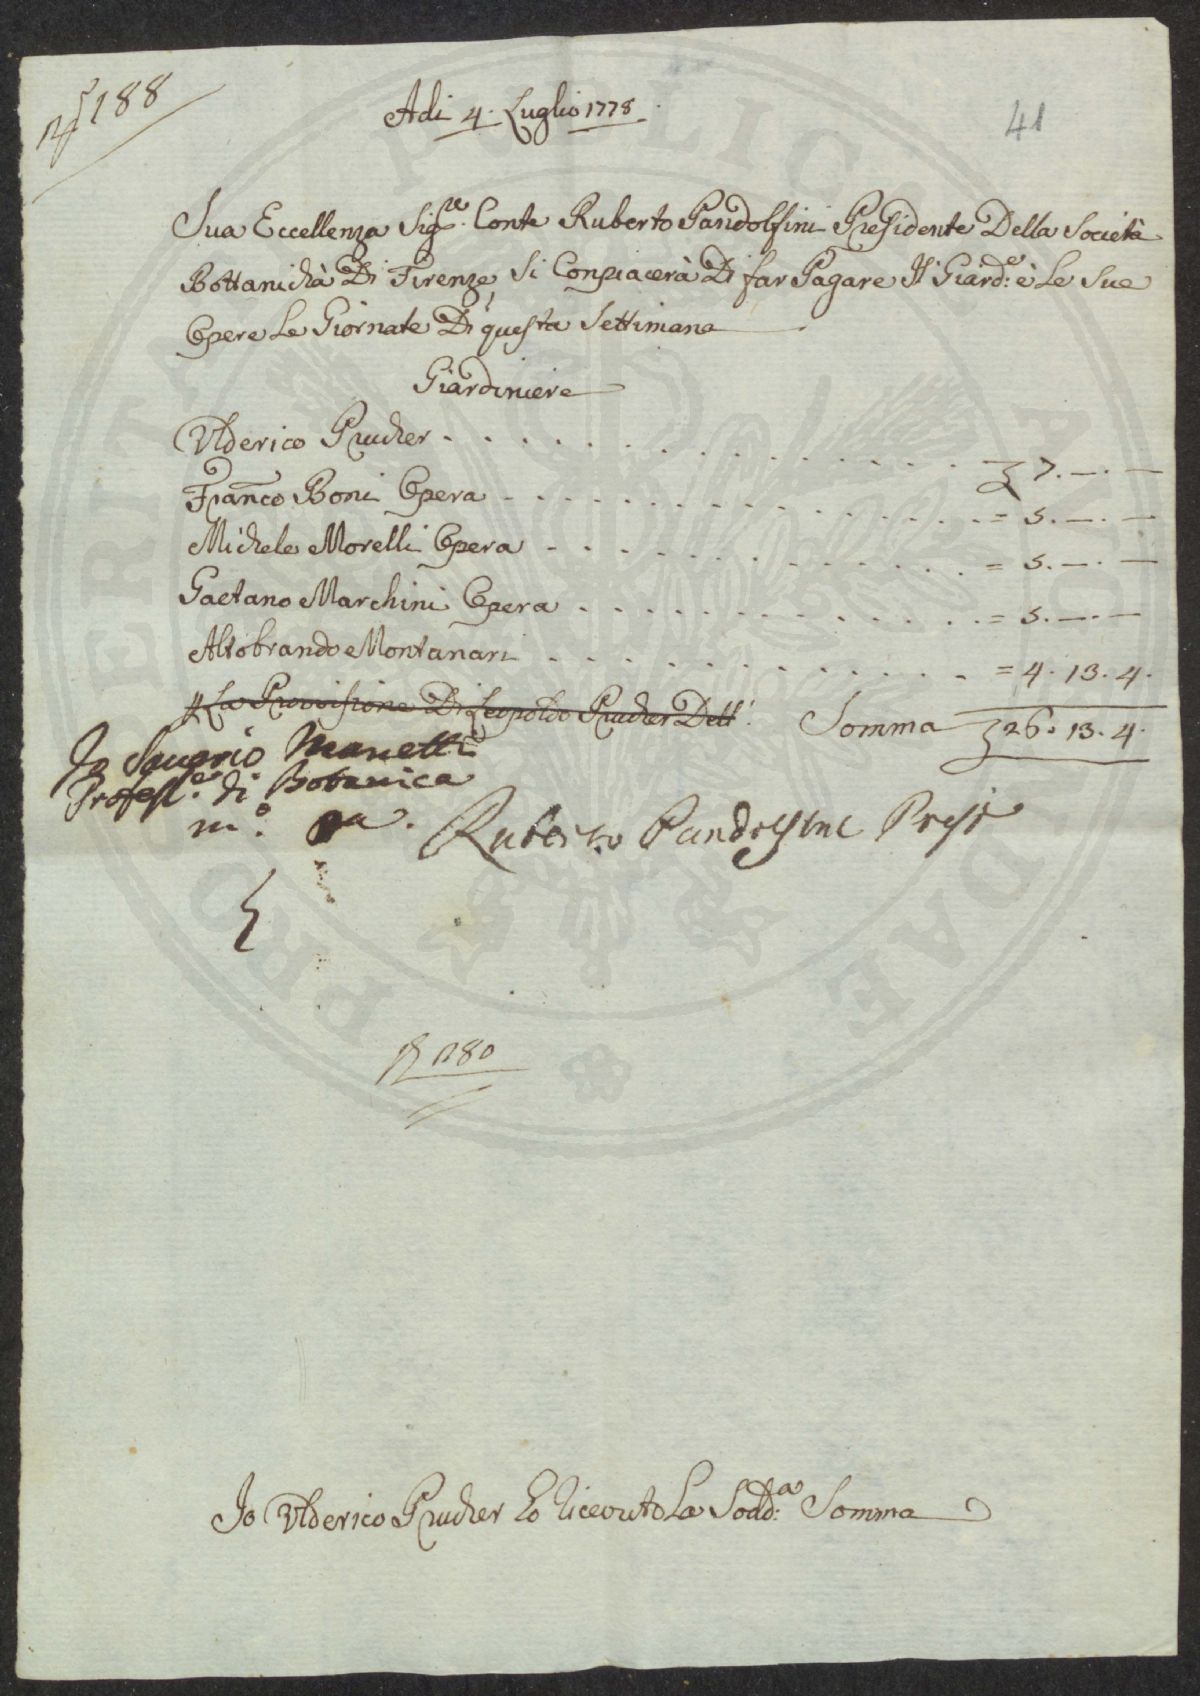 188
Adi 4. Luglio 1778.
41
Sua Eccellenza Sig:re Conte Ruberto Pandolfini Presidente Della Società
Bottanichà Di Firenze Si Conpiacerà Di far Pagare Il Giard:e è Le Sue
Opere Le Giornate Di questa Settimana
Giardiniere
Ulderico Prucher . . . . . . . . . . . . . . £ 7. —. —
Franco Boni Opera . . . . . . . . . . . . . = 5. —. —
Michele Morelli Opera . . . . . . . . . . . = 5. —. —
Gaetano Marchini Opera . . . . . . . . . . . = 5. —. —
Altobrando Montanari . . . . . . . . . . . . = 4. 13. 4.
La Provisione Di Leopoldo Prucher Dett: Somma £ 26. 13. 4.
Io Saverio Manetti
Profess.e di Botanica
m:o pa.
Ruberto Pandolfini Preside
180
Io Ulderico Prucher ho ricevuto La Sodd:a Somma
PRO VERITATE PUBLICA FIDE